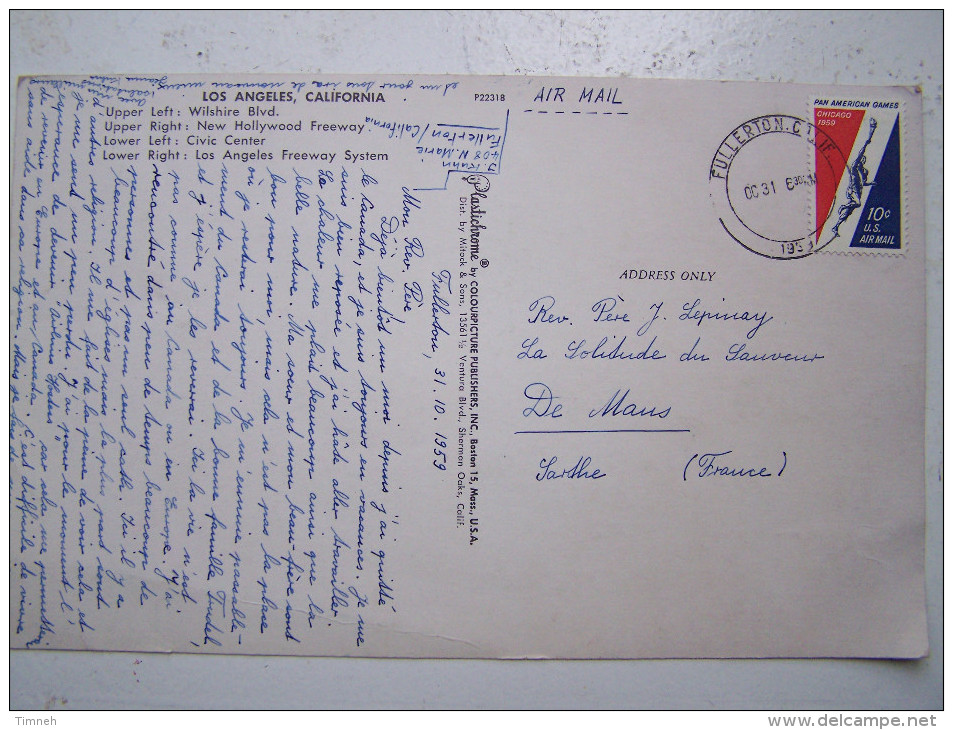 LOS ANGELES, CALIFORNIA
Upper Left: Wilshire Blvd.
Upper Right: New Hollywood Freeway
Lower Left: Civic Center
Lower Right: Los Angeles Freeway System
P22318
AIR MAIL
PAN AMERICAN GAMES
CHICAGO
1959
10¢
U.S.
AIR MAIL
FULLERTON. CALIF.
OC 31
ADDRESS ONLY
Rev. Père J. Lépinay
La Solitude du Sauveur
De Mans
Sarthe (France)
Plastichrome® by COLOURPICTURE PUBLISHERS, INC., Boston 15, Mass., U.S.A.
Dist. by Mitock & Sons, 13561½ Ventura Blvd., Sherman Oaks, Calif.
408 N. Marie
Fullerton/California
Fullerton, 31.10.1959
Mon Rev. Père
Déjà bientôt un moi depuis j'ai quitté
le Canada, et je suis toujours en vacances. Je me
suis bien reposée et j'ai hâte aller travailler.
La chaleur me plait beaucoup ainsi que la
belle nature. Ma soeur et mon beau-frère sont
bon pour moi, mais cela n'est pas la place
où je resterai toujours. Je m'ennuie passable-
ment du Canada et de la bonne famille Trudel
et j'espère je les reverrai. Ici la vie n'est
pas comme au Canada ou en Europe. J'ai
rencontré dans peu de temps beaucoup de
personnes et pas un seul cath. Ici il y a
beaucoup d'églises mais la plus part sont
d'autres religion. Il me fait de la peine de voir cela et
je me sent un peu perdu. J'ai pour le moment l'
espérance de devenir "Airline Hostess" car cela me permettrai
de revenir en Europe et au Canada. C'est difficile de vivre
sans aide dans sa religion. Mais je
et un jour dieu ira de nouveau mieux